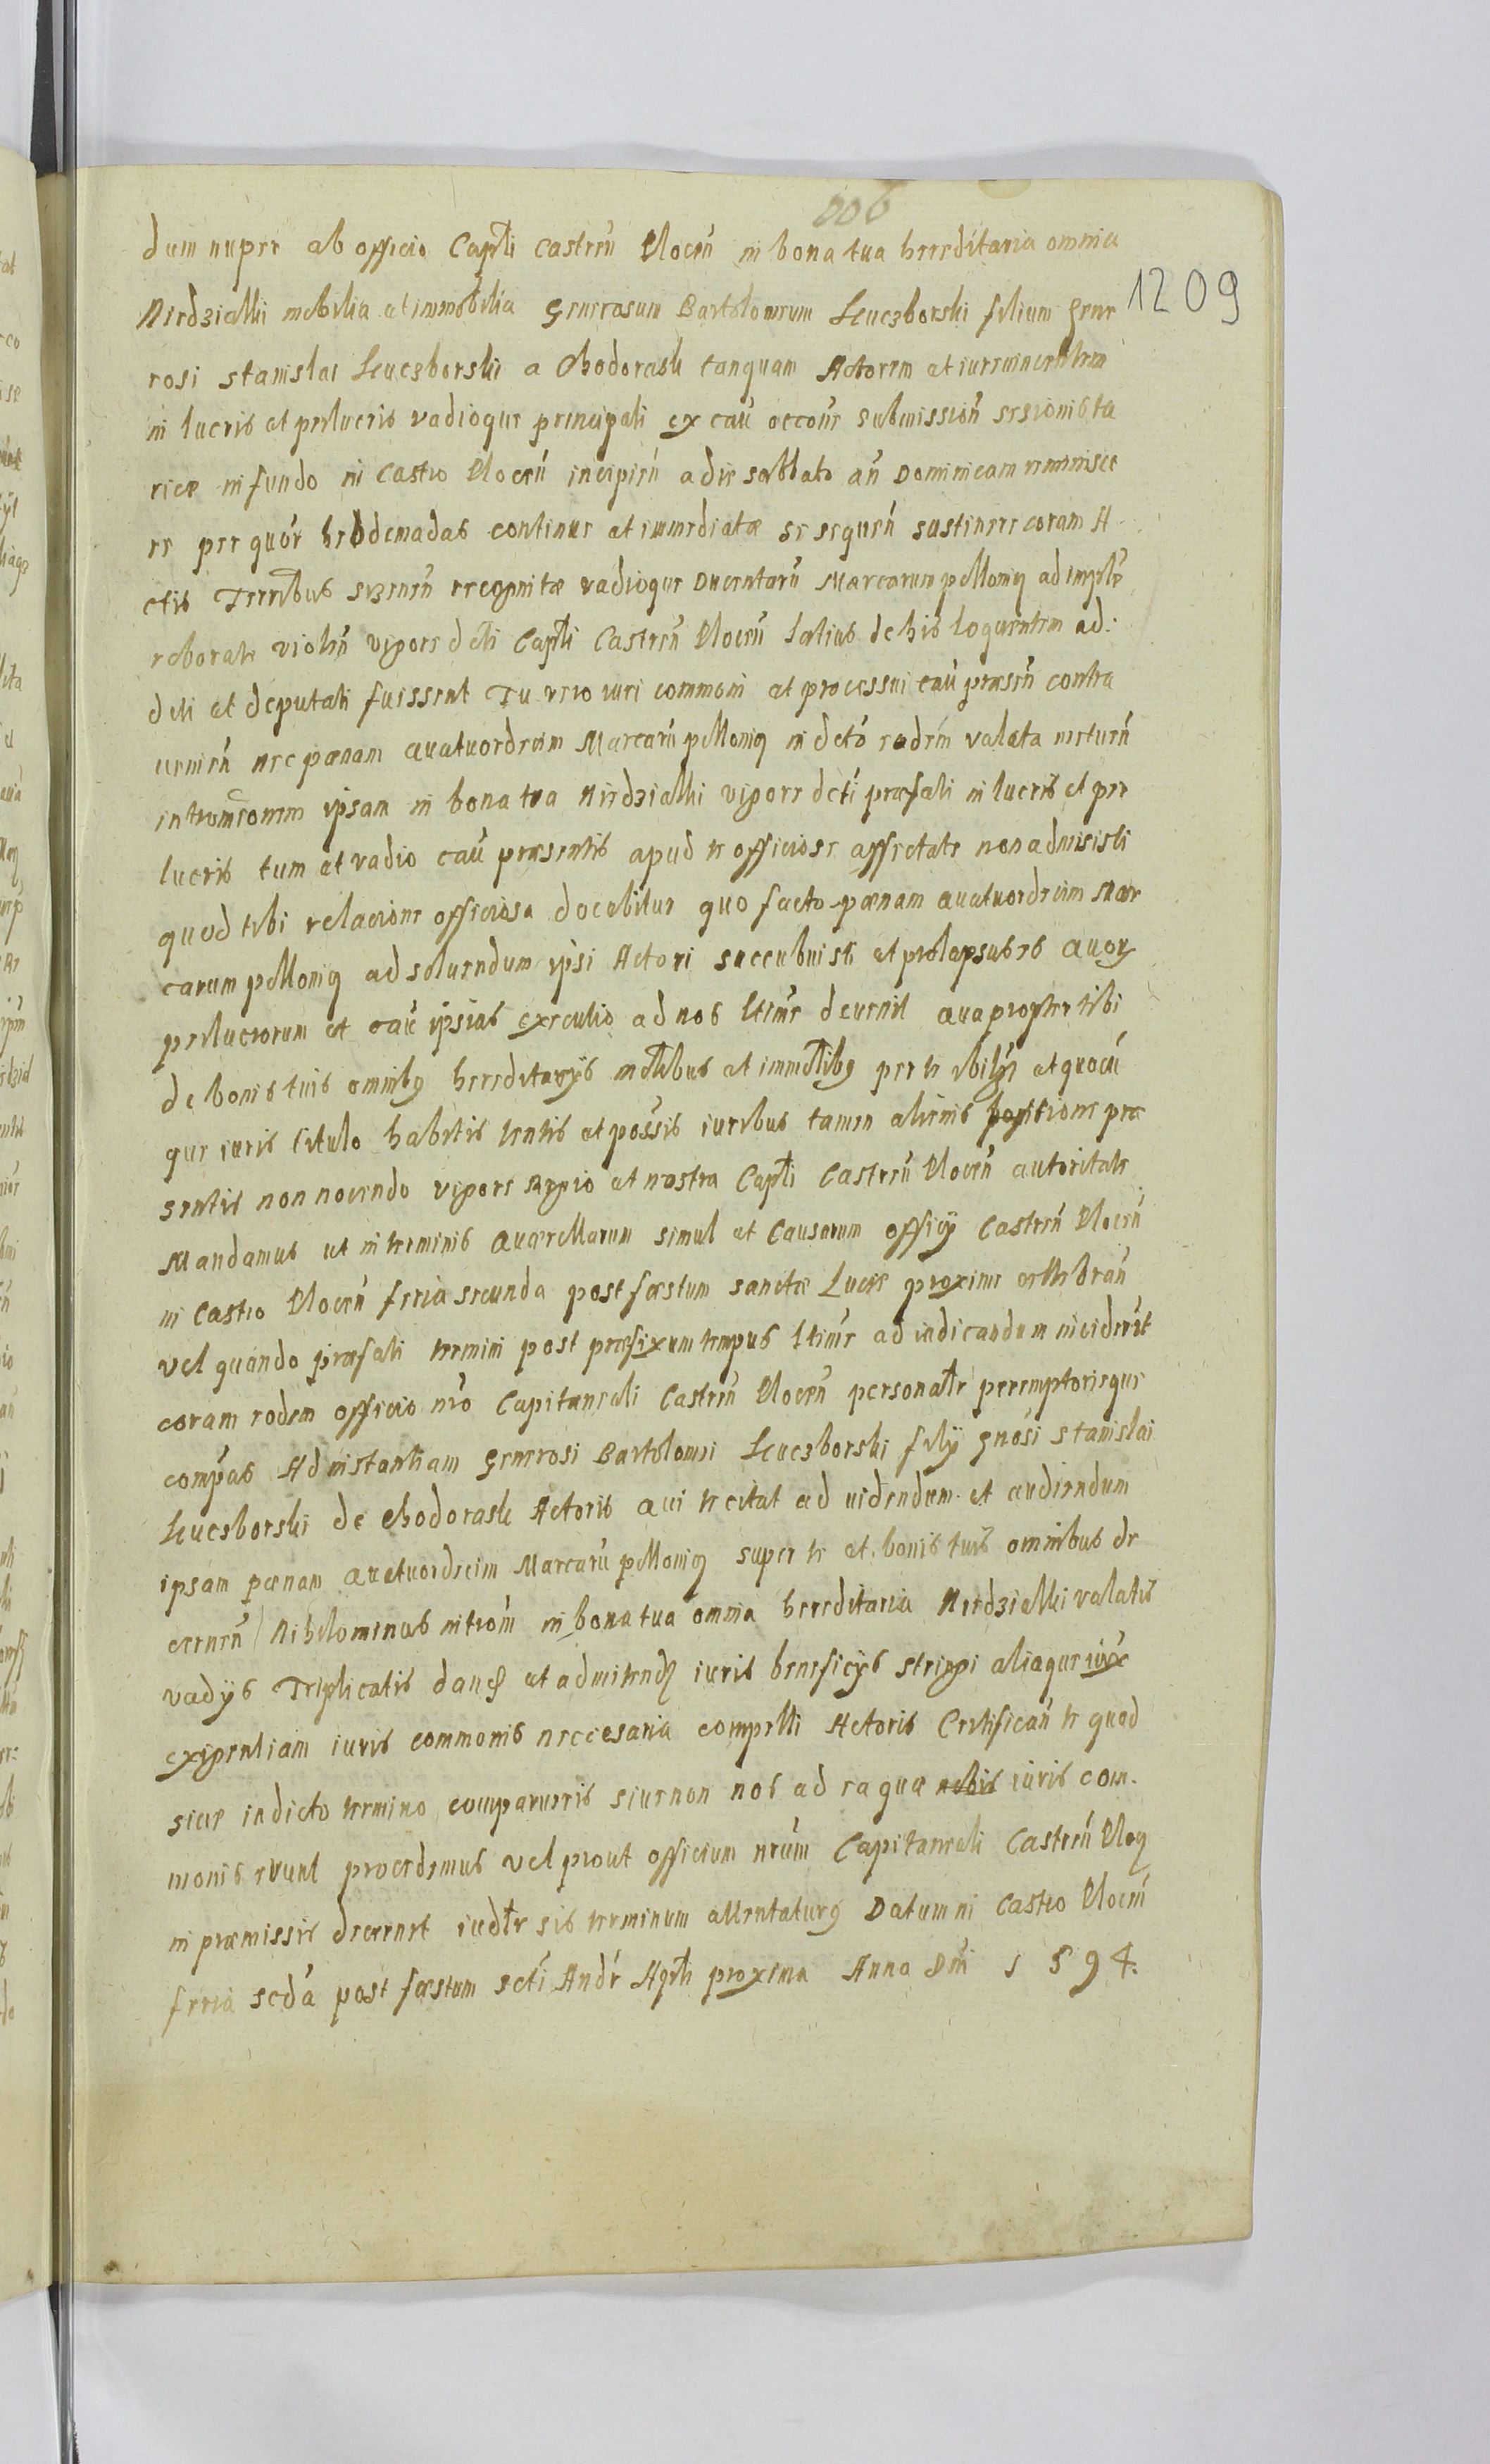 006
1209
dum nuper ab officio Captli Castren Plocen in bona tua hereditaria omnia
Niedzialki mobilia et immobilia Generosum Bartolomeum Kuczborski filium gene
rosi stanislai Kuczborski a Chodorash tanquam Actorem et iurevincentem
in lucris et perlucris vadioque principali ex cau submission sesionis tu
rice in fundo in Castro Plocen incipien a die sabbato an Dominicam reminisce
re per quor hebdomadas continue et immediatæ se sequen sustinere coram A
ctis Terribus recognitæ vadioque Ducentaru Marcarum pollonig ad
roborate violen vigore dcti Captli Castren Plocen latius de his loquentem ad:
diti et deputati fuissent Tu vero iuri commoni et processui cau præsen contra
uenien nec pænam Quatuordecim Marcaru pollonig in dcto eodem valata metuen
intromionem ipsam in bona tua Niedzialki vigore dcti præfati in lucris et per
lucris tum et vadio cau præsentis apud te officiose affectate non admisisti
quod tibi relacione officiosa docebitur quo facto pænam Quatuordecim Mar
carum pollonig ad soluendum ipsi Actori succubuisti et prolapsus es Quory
perlucrorum et cau ipsius executio ad nos ltime deuenit Quapropter tibi
de bonis tuis omnibg hereditarys motlibus et immotlibg per te vbilz et quocu
que iuris titulo habitis tentis et possis iuribus tamen alienis positione præ
sentis non nocendo vigore Regio et nostra Captli Castren Plocen autoritate
Mandamus ut in terminis Quærellarum simul et Causarum officy Castren Plocen
in Castro Plocen feria secunda post fæstum sanctæ Luciæ proxime celebran
vel quando præfati termini post præfixum tempus ltime ad iudicandum inciderit
coram eodem officio nro Capitaneali Castren Plocen personatr peremptorieque
compas Ad instantiam Generosi Bartolomei Kuczborski fily gnosi stanislai
Kuczborski de Chodorash Actoris Qui te citat ad uidendum et audiendum
ipsam pænam Quatuordecim Marcaru pollonig super te et bonis tuis omnibus de
cernen Nihilominus introm in bona tua omnia hereditaria Niedzialki valatis
vadys Triplicatis dand et admitendz iuris beneficys strixgi aliaque iux
exigentiam iuris commonis neccesaria compelli Actoris Certifican te quod
siue in dicto termino comparueris siue non nos ad ea quæ iuris com.
monis erunt procedemus vel prout officium nrum Capitaneali Castren Plog
in præmissis decernet iudtr sis terminum attentaturg Datum in Castro Plocen
feria scda post fæstum scti Andr Apli proxima Anno Dni 1594.